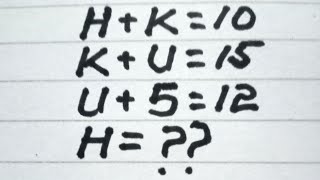 H+K=10
K+U=15
U+5=12
H=??